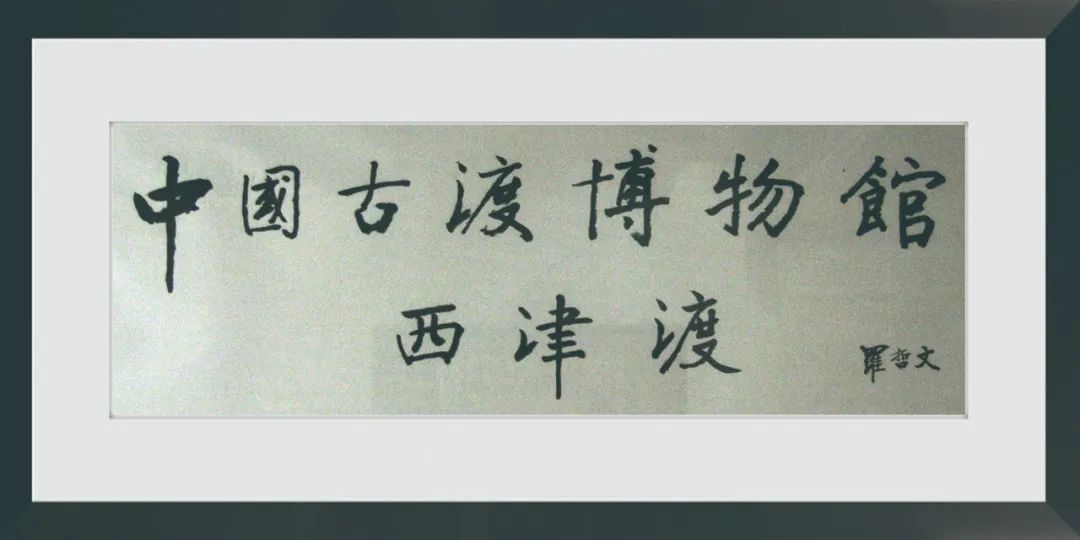 中國古渡博物館
西津渡
羅哲文